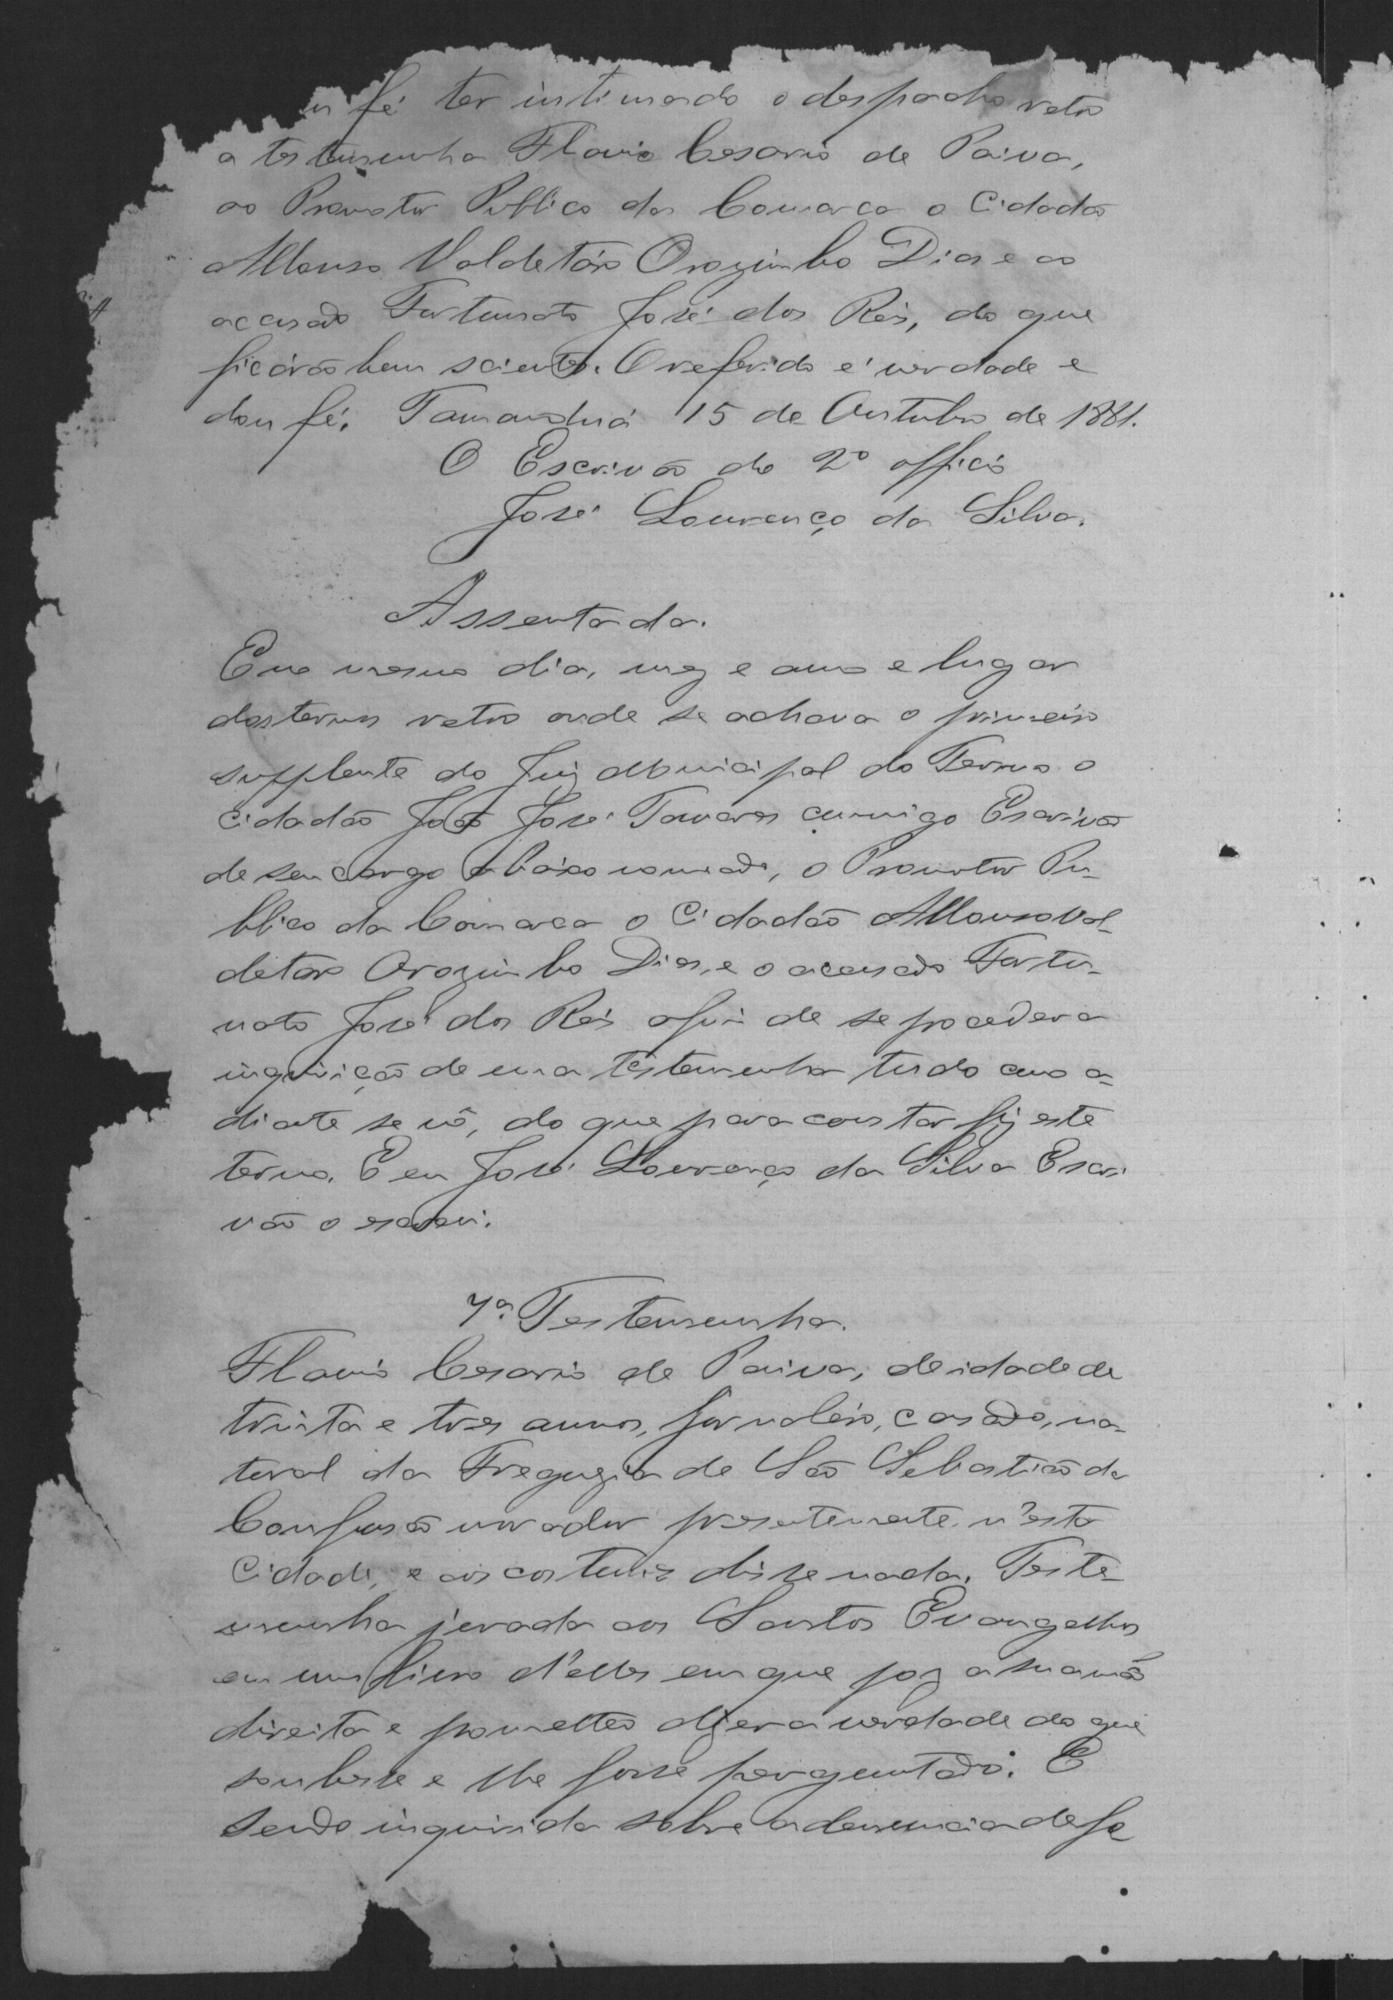 fé ter intimado o despacho retro
a testemunha Flavio Cesario de Paiva,
ao Promotor Publico da Comarca o Cidadão
Affonso Valdetáro Orozimbo Dias e ao
accusado Fortunato José dos Reis, do que
ficárão bem scientes. O referido é verdade e
dou fé. Tamanduá 15 de Outubro de 1881.
O Escrivão do 2º officio
José Lourenço da Silva.
Assentada.
E no mesmo dia, mez e anno e lugar
dos termos retro onde se achava o primeiro
supplente do Juiz Municipal do Termo o
Cidadão João José Tavares comigo Escrivão
de seu cargo abaixo nomeado, o Promotor Pu-
blico da Comarca o Cidadão Affonso Val-
detaro Orozimbo Dias, e o accusado Fortu-
nato José dos Reis afim de se proceder a
inquirição de uma testemunha tudo como a-
diante se vê, do que para constar fiz este
termo. E eu José Lourenço da Silva Escri-
vão o escrevi.
7ª Testemunha.
Flavio Cesario de Paiva, de idade de
trinta e tres annos, jornaleiro, casado, na-
tural da Freguezia de São Sebastião da
morador presentemente n'esta
Cidade, e aos costumes disse nada. Teste-
munha jurada aos Santos Evangelhos
em um livro d'elles em que poz a sua mão
direita e prometteo dizer a verdade do que
soubesse e lhe fosse perguntado. E
sendo inquirida sobre a denuncia de fo